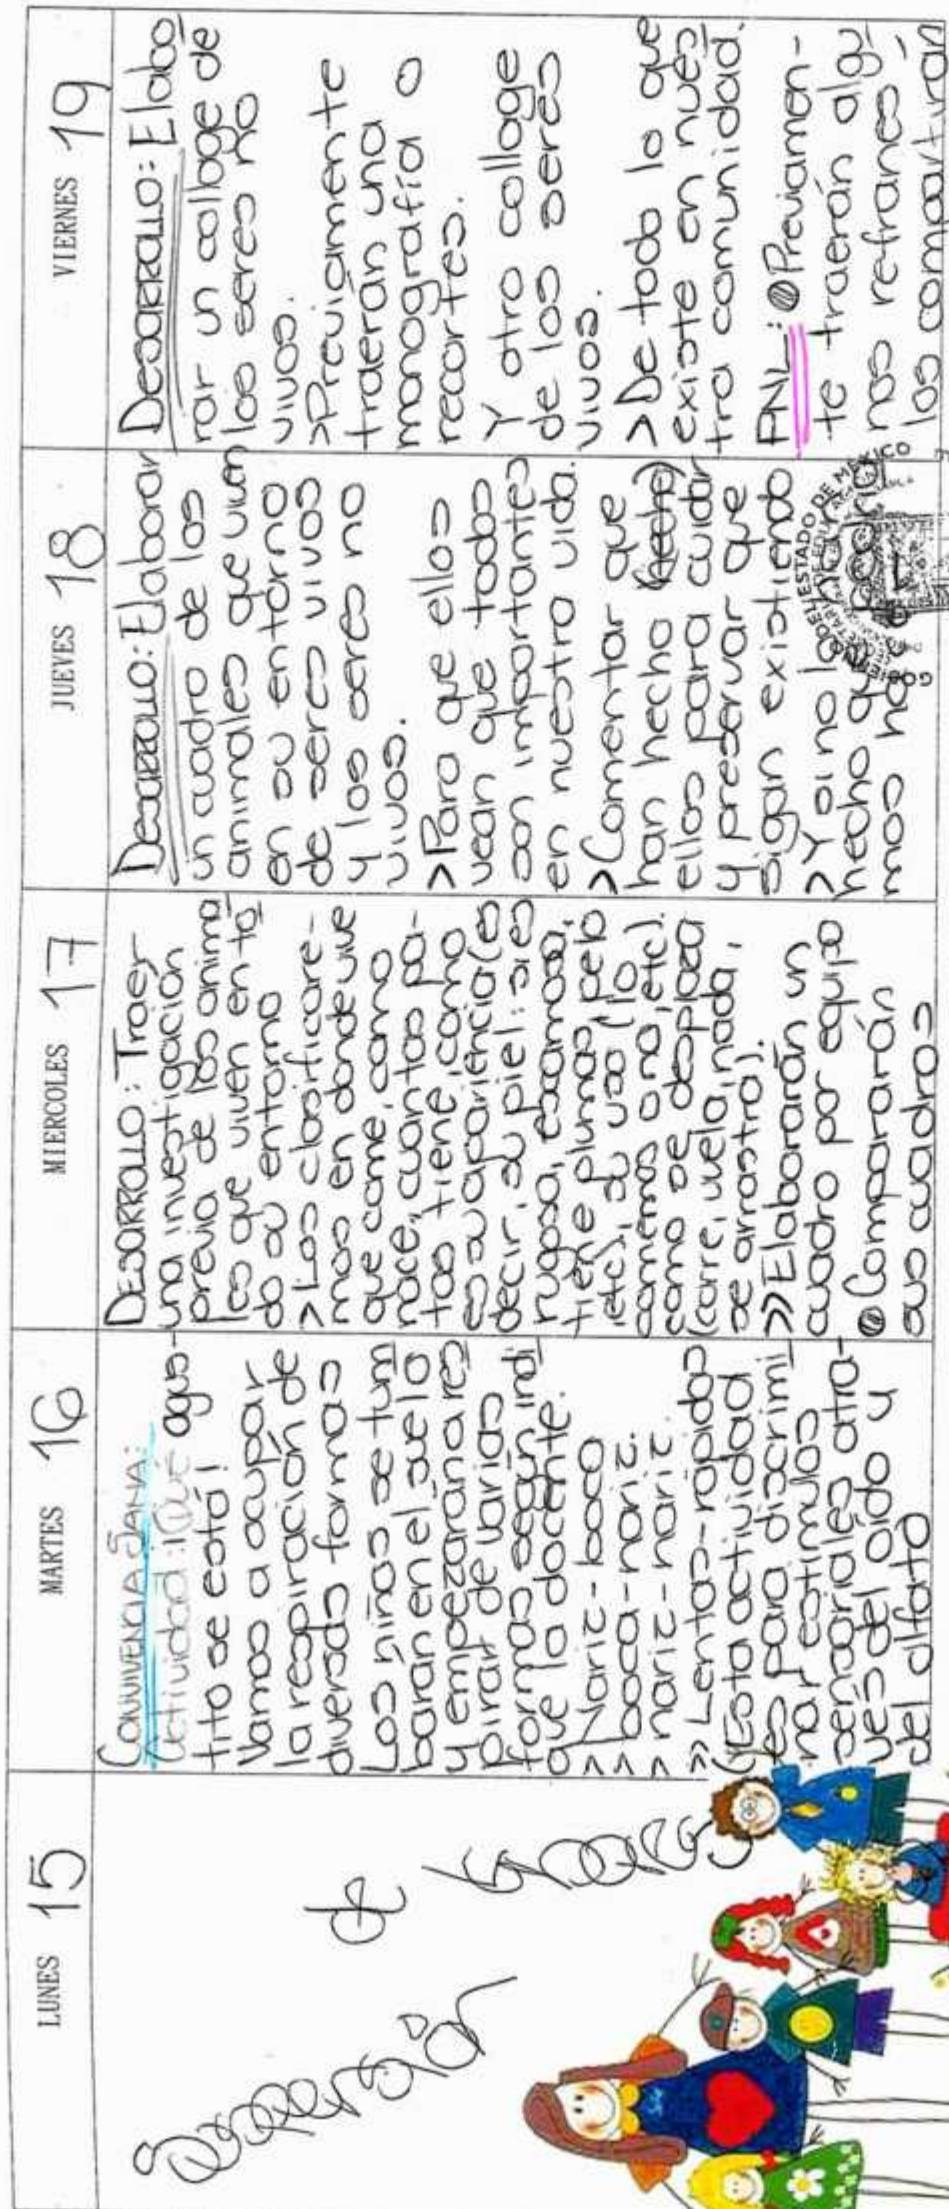 LUNES 15
Suspensión
de
labores
MARTES 16
CONVIVENCIA SANA:
Actividad: ¡Qué agus-
tito se está!
Vamos a ocupar
la respiración de
diversas formas
Los niños se tum
baran en el suelo
y empezaran a res
pirar de varias
formas según indi
que la docente.
> Nariz-boca
> boca-nariz.
> nariz-nariz.
>> Lentas-rápidas
(Esta actividad
es para discrimi
nar estimulos
sensoriales atra-
ves del oído y
del olfato
MIERCOLES 17
DESARROLLO: Traer
una investigación
previa de los anima
les que viven en to
do su entorno
> Los clasificare-
mos en donde vive
que come, como
nace, cuantas pa-
tas tiene, como
es su apariencia (es
decir, su piel: si es
rugosa, escamosa,
tiene plumas, pelo
,etc), su uso (lo
comemos o no, etc).
Como se desplaza
(corre, vuela, nada,
se arrastra).
>> Elaborarán un
cuadro por equipo
Compararán
sus cuadros
JUEVES 18
DESARROLLO: Elaborar
un cuadro de los
animales que viven
en su entorno
de seres vivos
y los seres no
vivos.
> Para que ellos
vean que todos
son importantes
en nuestra vida.
> Comentar que
han hecho (hecho)
ellos para cuidar
y preservar que
sigan existiendo
> Y si no lo han
hecho que podría
mos hacer
GOBIERNO DEL ESTADO DE MÉXICO
VIERNES 19
DESARROLLO: Elabo
rar un collage de
los seres no
vivos.
> Previamente
traerán una
monografía o
recortes.
Y otro collage
de los seres
vivos.
> De todo lo que
existe en nues
tra comunidad.
PNL: Previamen-
te traerán algu
nos refranes y
los compartirán